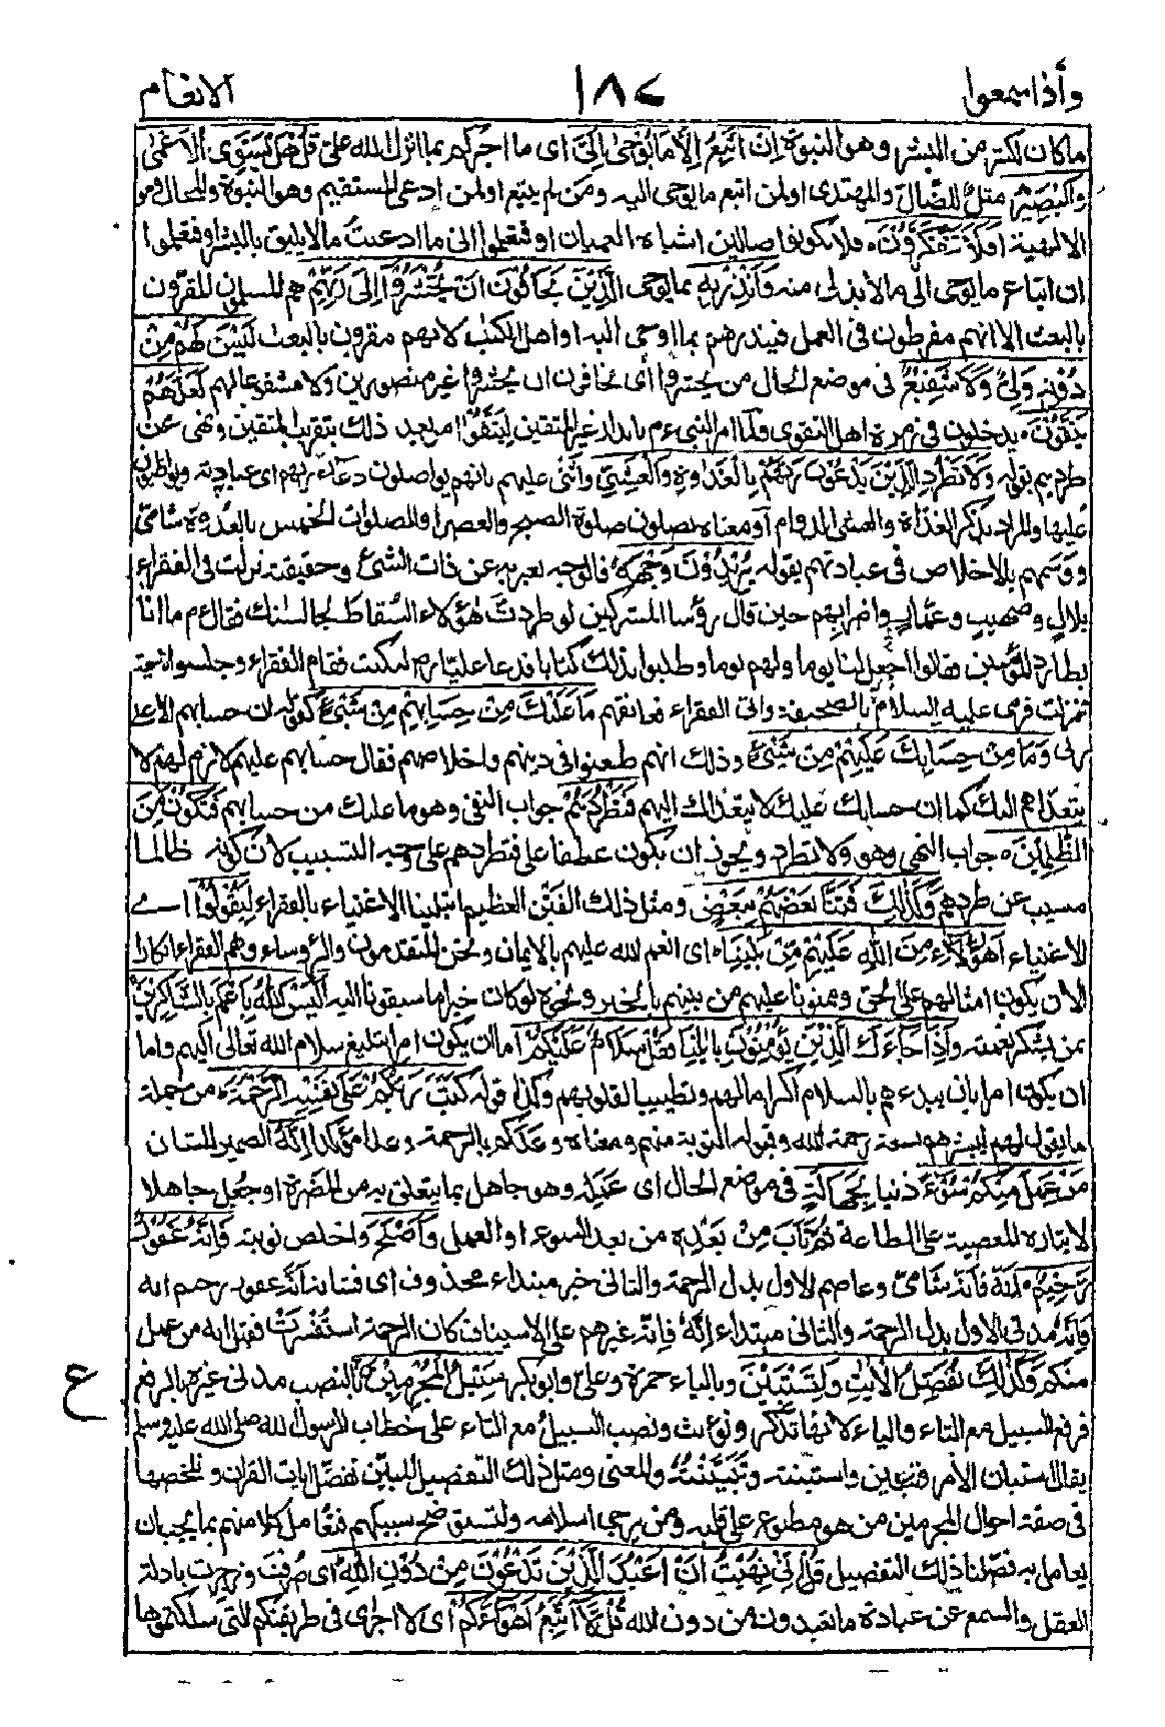 واذا سمعوا ١٨٧ الانعام
ماكان لكثير من البشر وهو النبوة اِنْ اَتَّبِعُ اِلَّا مَا يُوْحٰى اِلَيَّ اى ما اخبركم بما انزل الله علىّ قُلْ هَلْ يَسْتَوِى الْاَعْمٰى
وَالْبَصِيْرُ مثل للضال والمهتدى او لمن اتبع ما يوحى اليه ومن لم يتبع او لمن ادعى المستقيم وهو النبوة والمحال وهو
الالهية اَفَلَا تَتَفَكَّرُوْنَ ه فلا تكونوا ضالين اشباه العميان او فتعلموا انى ما ادعيت ما لا يليق بالبشر او فتعلموا
ان اتباع ما يوحى الى مما لا بد لى منه وَاَنْذِرْ بِهِ بما يوحى الَّذِيْنَ يَخَافُوْنَ اَنْ يُّحْشَرُوْٓا اِلٰى رَبِّهِمْ هم المسلمون المقرون
بالبعث الا انهم مفرطون فى العمل فينذرهم بما اوحى اليه او اهل الكتٰب لانهم مقرون بالبعث لَيْسَ لَهُمْ مِّنْ
دُوْنِهٖ وَلِيٌّ وَّلَا شَفِيْعٌ فى موضع الحال من يحشروا اى يخافون ان يحشروا غير منصورين ولا مشفوعا لهم لَّعَلَّهُمْ
يَتَّقُوْنَ ه يدخلون فى زمرة اهل التقوى ولما امر النبى ءم بانذار غير المتقين ليتقوا امر بعد ذلك بتقريب المتقين ونهى عن
طردهم بقوله وَلَا تَطْرُدِ الَّذِيْنَ يَدْعُوْنَ رَبَّهُمْ بِالْغَدٰوةِ وَالْعَشِيِّ واثنى عليهم بانهم يواصلون دعاء ربهم اى عبادته ويواظبون
عليها والمراد بذكر الغداة والعشى الدوام او معناه يصلون صلوة الصبح والعصر او الصلوات الخمس بالغدوة شامىّ
ووسمهم بالاخلاص فى عبادتهم بقوله يُرِيْدُوْنَ وَجْهَهٗ فالوجه يعبر به عن ذات الشئ وحقيقته نزلت فى الفقراء
بلال وصهيب وعمار واضرابهم حين قال رؤسا المشركين لو طردت هٰؤلاء السقاط لجالسناك فقال ءم ما انا
بطارد المؤمنين فقالوا اجعل لنا يوما ولهم يوما وطلبوا بذلك كتابا فدعا عليا رض ليكتب فقام الفقراء وجلسوا ناحية
فنزلت فرمى عليه السلام بالصحيفة واتى الفقراء فعانقهم مَا عَلَيْكَ مِنْ حِسَابِهِمْ مِّنْ شَيْءٍ كقوله ان حسابهم الا على
ربى وَّمَا مِنْ حِسَابِكَ عَلَيْهِمْ مِّنْ شَيْءٍ وذلك انهم طعنوا فى دينهم واخلاصهم فقال حسابهم عليهم لازم لهم لا
يتعداهم اليك كما ان حسابك عليك لا يتعداك اليهم فَتَطْرُدَهُمْ جواب النفى وهو ما عليك من حسابهم فَتَكُوْنَ مِنَ
الظّٰلِمِيْنَ ه جواب النهى وهو ولا تطرد ويجوز ان يكون عطفا على فتطردهم على وجه التسبيب لان كونه ظالما
مسبب عن طردهم وَكَذٰلِكَ فَتَنَّا بَعْضَهُمْ بِبَعْضٍ ومثل ذلك الفتن العظيم ابتلينا الاغنياء بالفقراء لِّيَقُوْلُوْٓا اے
الاغنياء اَهٰٓؤُلَآءِ مَنَّ اللّٰهُ عَلَيْهِمْ مِّنْ بَيْنِنَا ه اى انعم الله عليهم بالايمان ونحن المتقدمون والرؤساء وهم الفقراء انكارا
لان يكون امثالهم على الحق وممنونا عليهم من بينهم بالخير ونحوه لو كان خيرا ما سبقونا اليه اَلَيْسَ اللّٰهُ بِاَعْلَمَ بِالشّٰكِرِيْنَ ه
بمن يشكر نعمته وَاِذَا جَآءَكَ الَّذِيْنَ يُؤْمِنُوْنَ بِاٰيٰتِنَا فَقُلْ سَلٰمٌ عَلَيْكُمْ اما ان يكون امرا بتبليغ سلام الله تعالى اليهم واما
ان يكون امرا بان يبدءهم بالسلام اكراما لهم وتطييبا لقلوبهم وكذا قوله كَتَبَ رَبُّكُمْ عَلٰى نَفْسِهِ الرَّحْمَةَ ه من جملة
ما يقول لهم ليبشرهم بسعة رحمة الله وقبوله التوبة منهم ومعناه وعدكم بالرحمة وعدا مؤكدا اِنَّهٗ الضمير للشان
مَنْ عَمِلَ مِنْكُمْ سُوْٓءًا ذنبا بِجَهَالَةٍ فى موضع الحال اى عمله وهو جاهل بما يتعلق به من المضرة او جعل جاهلا
لايثاره المعصية على الطاعة ثُمَّ تَابَ مِنْ بَعْدِهٖ من بعد السوء او العمل وَاَصْلَحَ واخلص توبته فَاِنَّهٗ غَفُوْرٌ
رَّحِيْمٌ ه انه فانه شامىّ وعاصم الاول بدل الرحمة والثانى خبر مبتداء محذوف اى فشانه انه غفور رحيم انه
فانه مدنى الاول بدل الرحمة والثانى مبتداء اِنَّهٗ فاِنّه غيرهم على الاستيناف كان الرحمة استفسرت فقيل انه من عمل
منكم وَكَذٰلِكَ نُفَصِّلُ الْاٰيٰتِ وَلِتَسْتَبِيْنَ وبالياء حمزة وعلى وابوبكر سَبِيْلُ الْمُجْرِمِيْنَ ه بالنصب مدنى غيره بالرفع
ع
فرفع السبيل مع التاء والياء لانها تذكر وتؤنث ونصب السبيل مع التاء على خطاب الرسول الله صلى الله عليه وسلم
يقال استبان الامر وتبين واستبنته وتبينته والمعنى ومثل ذلك التفصيل البين نفصل ايات القران ونلخصها
فى صفة احوال المجرمين من هو مطبوع على قلبه ومن يرجى اسلامه ولتستوضح سبيلهم فتعامل كلا منهم بما يجب ان
يعامل به فصلنا ذلك التفصيل قُلْ اِنِّيْ نُهِيْتُ اَنْ اَعْبُدَ الَّذِيْنَ تَدْعُوْنَ مِنْ دُوْنِ اللّٰهِ اى صرفت وزجرت بادلة
العقل والسمع عن عبادة ما تعبدون من دون الله قُلْ لَّآ اَتَّبِعُ اَهْوَآءَكُمْ اى لا اجرى فى طريقتكم التى سلكتموها